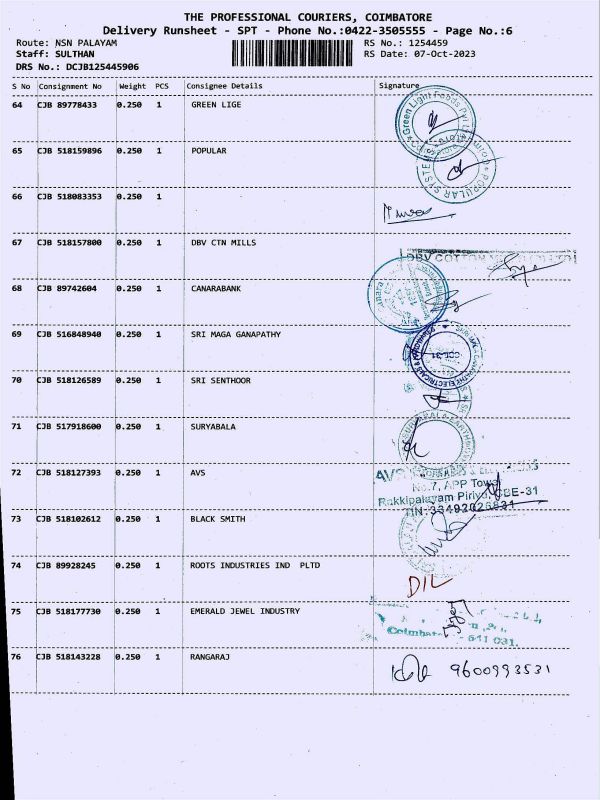 THE PROFESSIONAL COURIERS, COIMBATORE
Delivery Runsheet - SPT - Phone No.:0422-3505555 - Page No.:6
Route: NSN PALAYAM
RS No.: 1254459
Staff: SULTHAN
RS Date: 07-Oct-2023
DRS No.: DCJB125445906
S No Consignment No Weight PCS Consignee Details Signature
64 CJB 89778433 0.250 1 GREEN LIGE
Green Light Foods Pvt Ltd
65 CJB 518159896 0.250 1 POPULAR
POPULAR SYSTEM
66 CJB 518083353 0.250 1
67 CJB 518157800 0.250 1 DBV CTN MILLS
DBV COTTON
68 CJB 89742604 0.250 1 CANARABANK
69 CJB 516848940 0.250 1 SRI MAGA GANAPATHY
70 CJB 518126589 0.250 1 SRI SENTHOOR
71 CJB 517918600 0.250 1 SURYABALA
72 CJB 518127393 0.250 1 AVS
AVS
No.7, APP Tower
Rakkipalayam Pirivu, CBE-31
73 CJB 518102612 0.250 1 BLACK SMITH
74 CJB 89928245 0.250 1 ROOTS INDUSTRIES IND PLTD
DIL
75 CJB 518177730 0.250 1 EMERALD JEWEL INDUSTRY
- 641 031.
76 CJB 518143228 0.250 1 RANGARAJ
9600993531